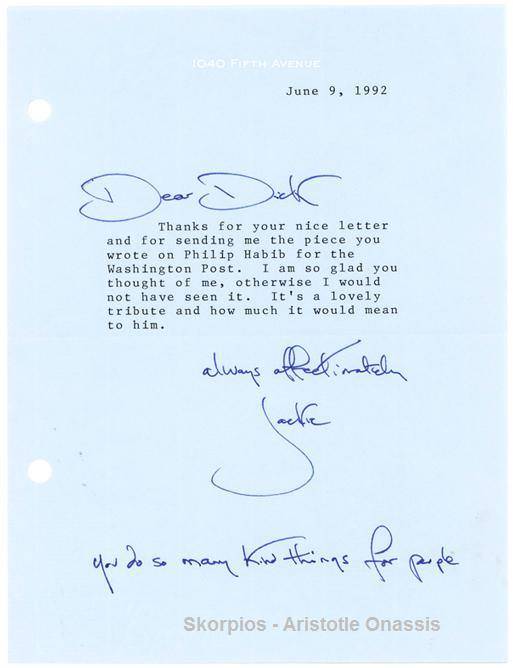 1040 FIFTH AVENUE
June 9, 1992
Dear Dick
Thanks for your nice letter
and for sending me the piece you
wrote on Philip Habib for the
Washington Post. I am so glad you
thought of me, otherwise I would
not have seen it. It's a lovely
tribute and how much it would mean
to him.
always affectionately
Jackie
you do so many kind things for people
Skorpios - Aristotle Onassis